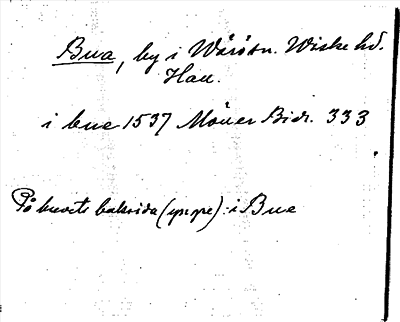 Bua, by i Värö sn. Viske hd.
Hall.
i bue 1537 Möller Bidr. 333
På kuvets baksida (yppe): i Bue